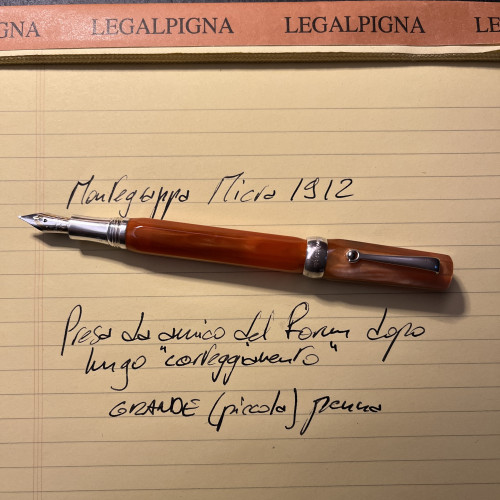 LEGALPIGNA LEGALPIGNA LE
Montegrappa Micra 1912
Presa da amico del Forum dopo
lungo "corteggiamento"
GRANDE (piccola) penna